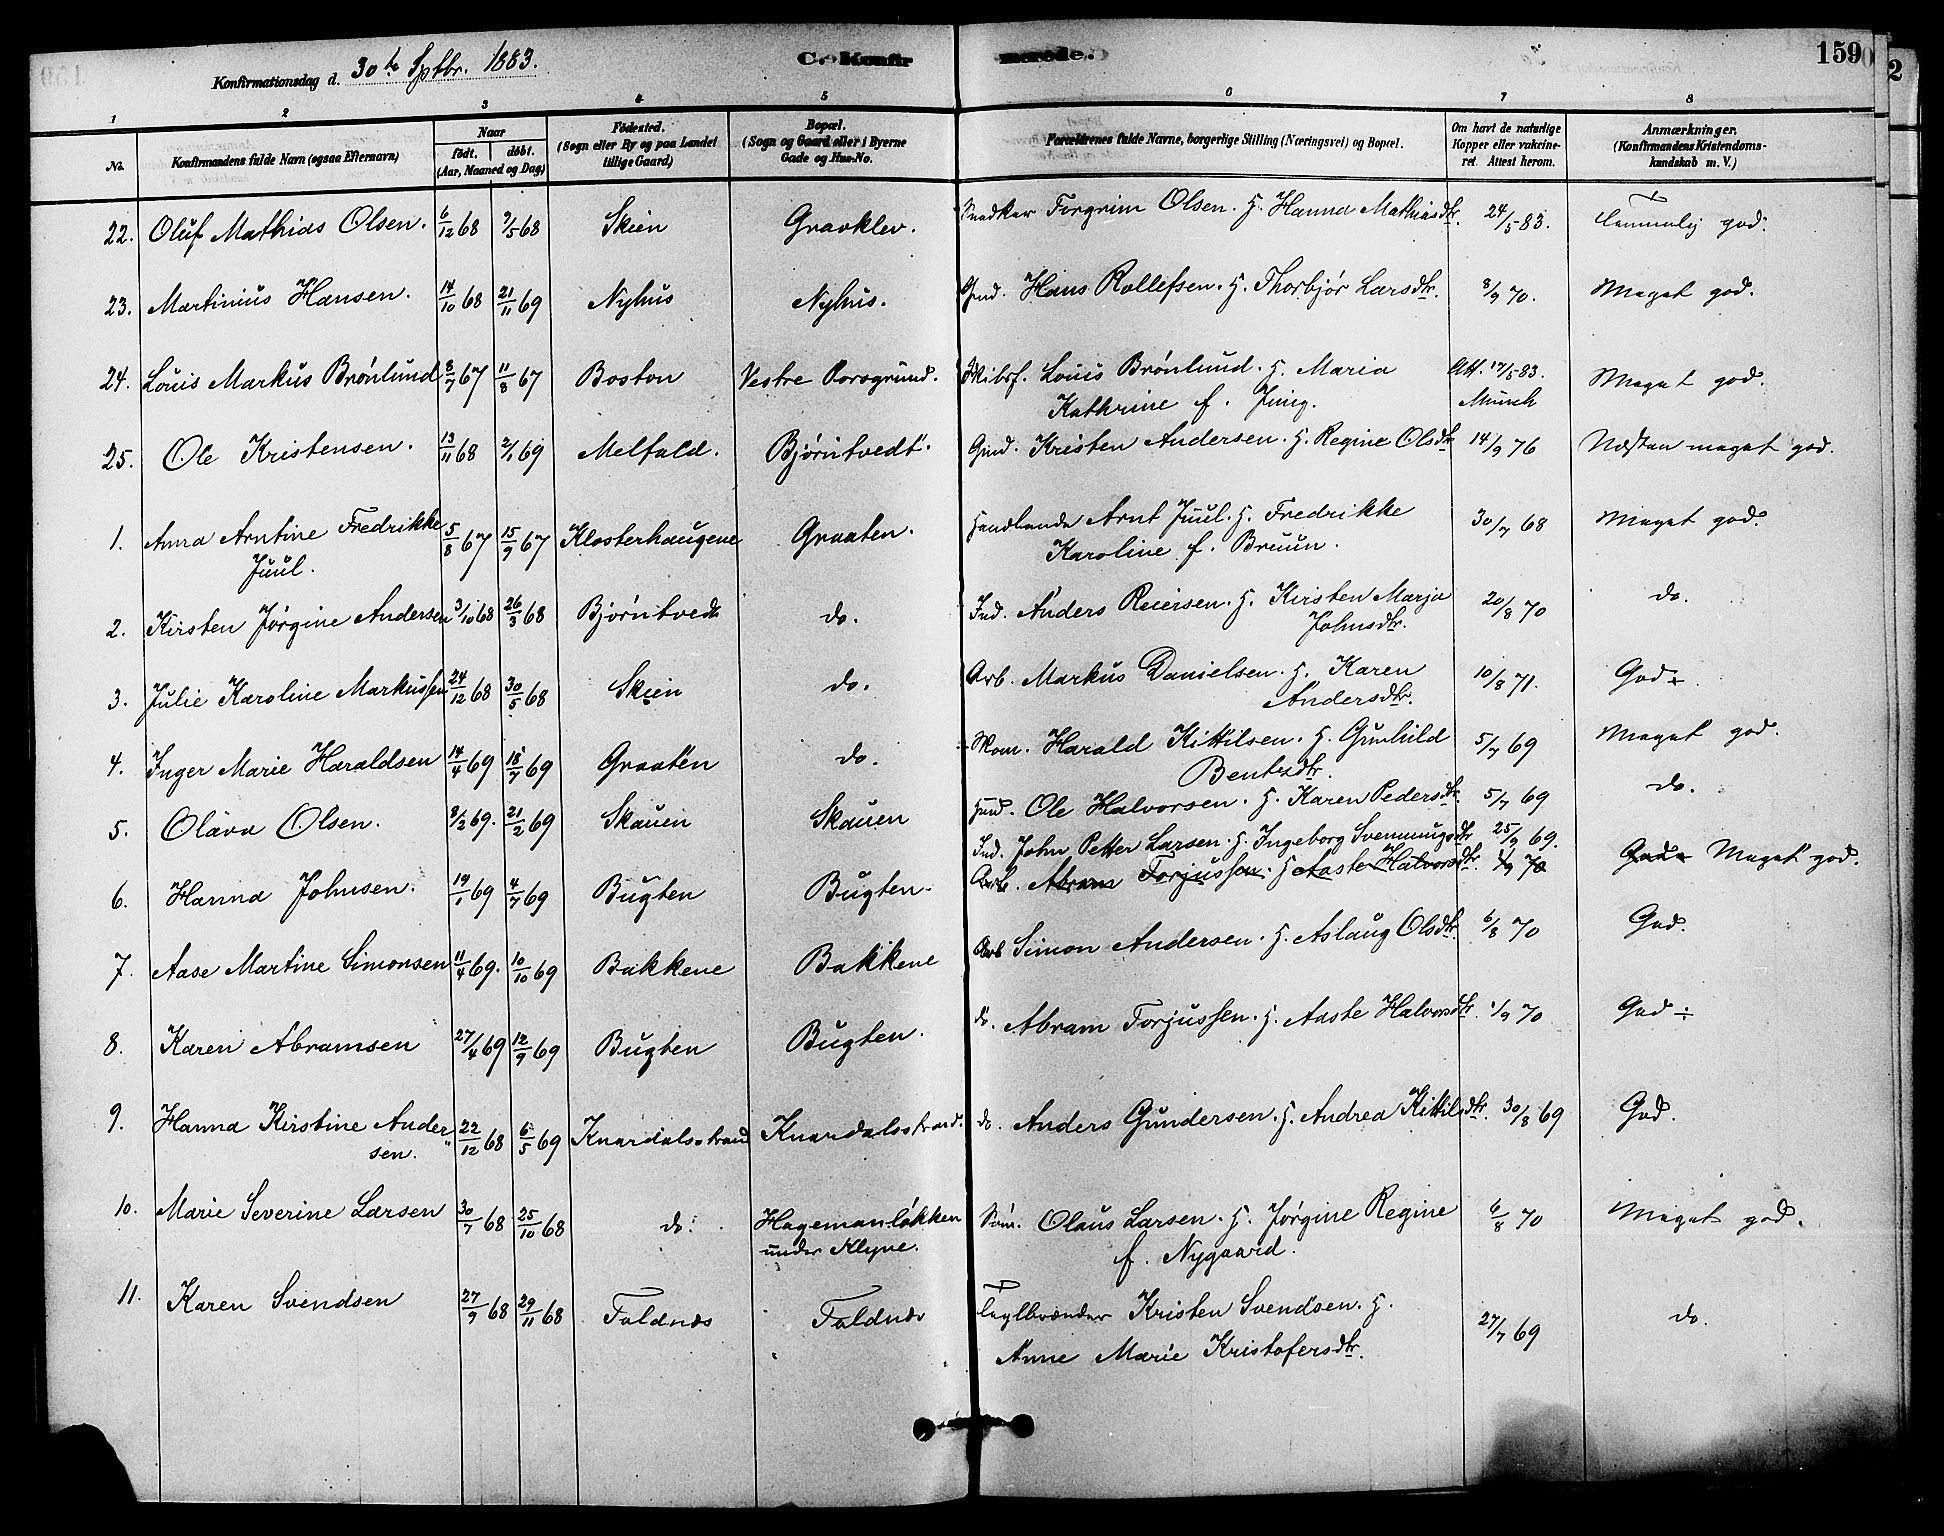 159
Konfirmationsdag d. 30te Sptbr. 1883.
C. Konfirmerede.
1 2 3 4 5 6 7 8
No. Konfirmandens fulde Navn (ogsaa Efternavn) Naar født. døbt. (Aar, Maaned og Dag) Fødested. (Sogn eller By og paa Landet tillige Gaard) Bopæl. (Sogn og Gaard eller i Byerne Gade og Hus-No. Forældrenes fulde Navne, borgerlige Stilling (Næringsvei) og Bopæl. Om havt de naturlige Kopper eller vaccineret. Attest herom. Anmærkninger. (Konfirmandens Kristendomskundskab m. V.)
22. Oluf Mathias Olsen. 6/12 68 3/5 68 Skien Gravklev. Snedker Torgrim Olsen. H. Hanna Mathiasdtr. 24/5-83. Temmelig god.
23. Martinius Hansen. 14/10 68 21/11 69 Nyhus Nyhus. Gmd. Hans Rollefsen. H. Thorbjør Larsdtr. 8/9 70. Meget god.
24. Louis Markus Brönlund 8/7 67 11/8 67 Boston Vestre Porsgrund. Skibsf. Louis Brönlund. H. Maria Att. 17/5-83. Meget god.
Kathrine f. Jung. Münch
25. Ole Kristensen. 13/11 68 2/1 69 Melfald. Bjørntvedt. Gmd. Kristen Andersen. H. Regine Olsdtr 14/9 76 Næsten meget god.
1. Anna Arntine Fredrikke 5/8 67 15/9 67 Klosterhaugene Graaten. Handlende Arnt Juul. H. Fredrikke 30/7 68 Meget god.
Juul. Karoline f. Bruun.
2. Kirsten Jørgine Andersen 3/10 68 26/3 68 Bjørntvedt do. Ind. Anders Reiersen. H. Kirsten Marja 20/8 70 do.
Johnsdtr.
3. Julie Karoline Markussen 24/12 68 30/5 68 Skien do. Arb. Markus Danielsen. H. Karen 10/8 71. God÷.
Andersdtr.
4. Inger Marie Haraldsen 14/4 69 18/7 69 Graaten do. Skom. Harald Kittilsen. H. Gunhild 5/7 69 Meget god.
Bentsdtr.
5. Olava Olsen. 3/2 69. 21/2 69 Skauen Skauen Hmd. Ole Halvorsen. H. Karen Pedersdtr. 5/7 69 do.
6. Hanna Johnsen. 19/1 69 4/7 69 Bugten Bugten. Ind. John Petter Larsen. H. Ingeborg Svennungsdtr 25/9 69. God÷ Meget god.
Arb. Abram Torjussen. H. Aaste Halvorsdtr. 1/9 70
7. Aase Martine Simonsen 11/4 69. 10/10 69 Bakkene Bakkene Arb Simon Andersen. H. Aslaug Olsdtr. 6/8 70 God.
8. Karen Abramsen 27/4 69 12/9 69 Bugten Bugten. do. Abram Torjussen. H. Aaste Halvorsdtr. 1/9 70 God ÷
9. Hanna Kirstine Ander- 22/12 68 6/5 69 Knardalsstrand Knardalsstrand. do. Anders Gundersen. H. Andrea Kittilsdtr. 30/8 69 God.
sen.
10. Marie Severine Larsen 30/7 68 25/10 68 do. Hagemanløkken Søm. Olaus Larsen. H. Jørgine Regine 6/8 70 Meget god.
under Klyve. f. Nygaard.
11. Karen Svendsen 27/9 68 29/11 68 Foldnæs Foldnæs Teglbrænder Kristen Svendsen. H. 27/7 69 do.
Anne Marie Kristofersdtr.